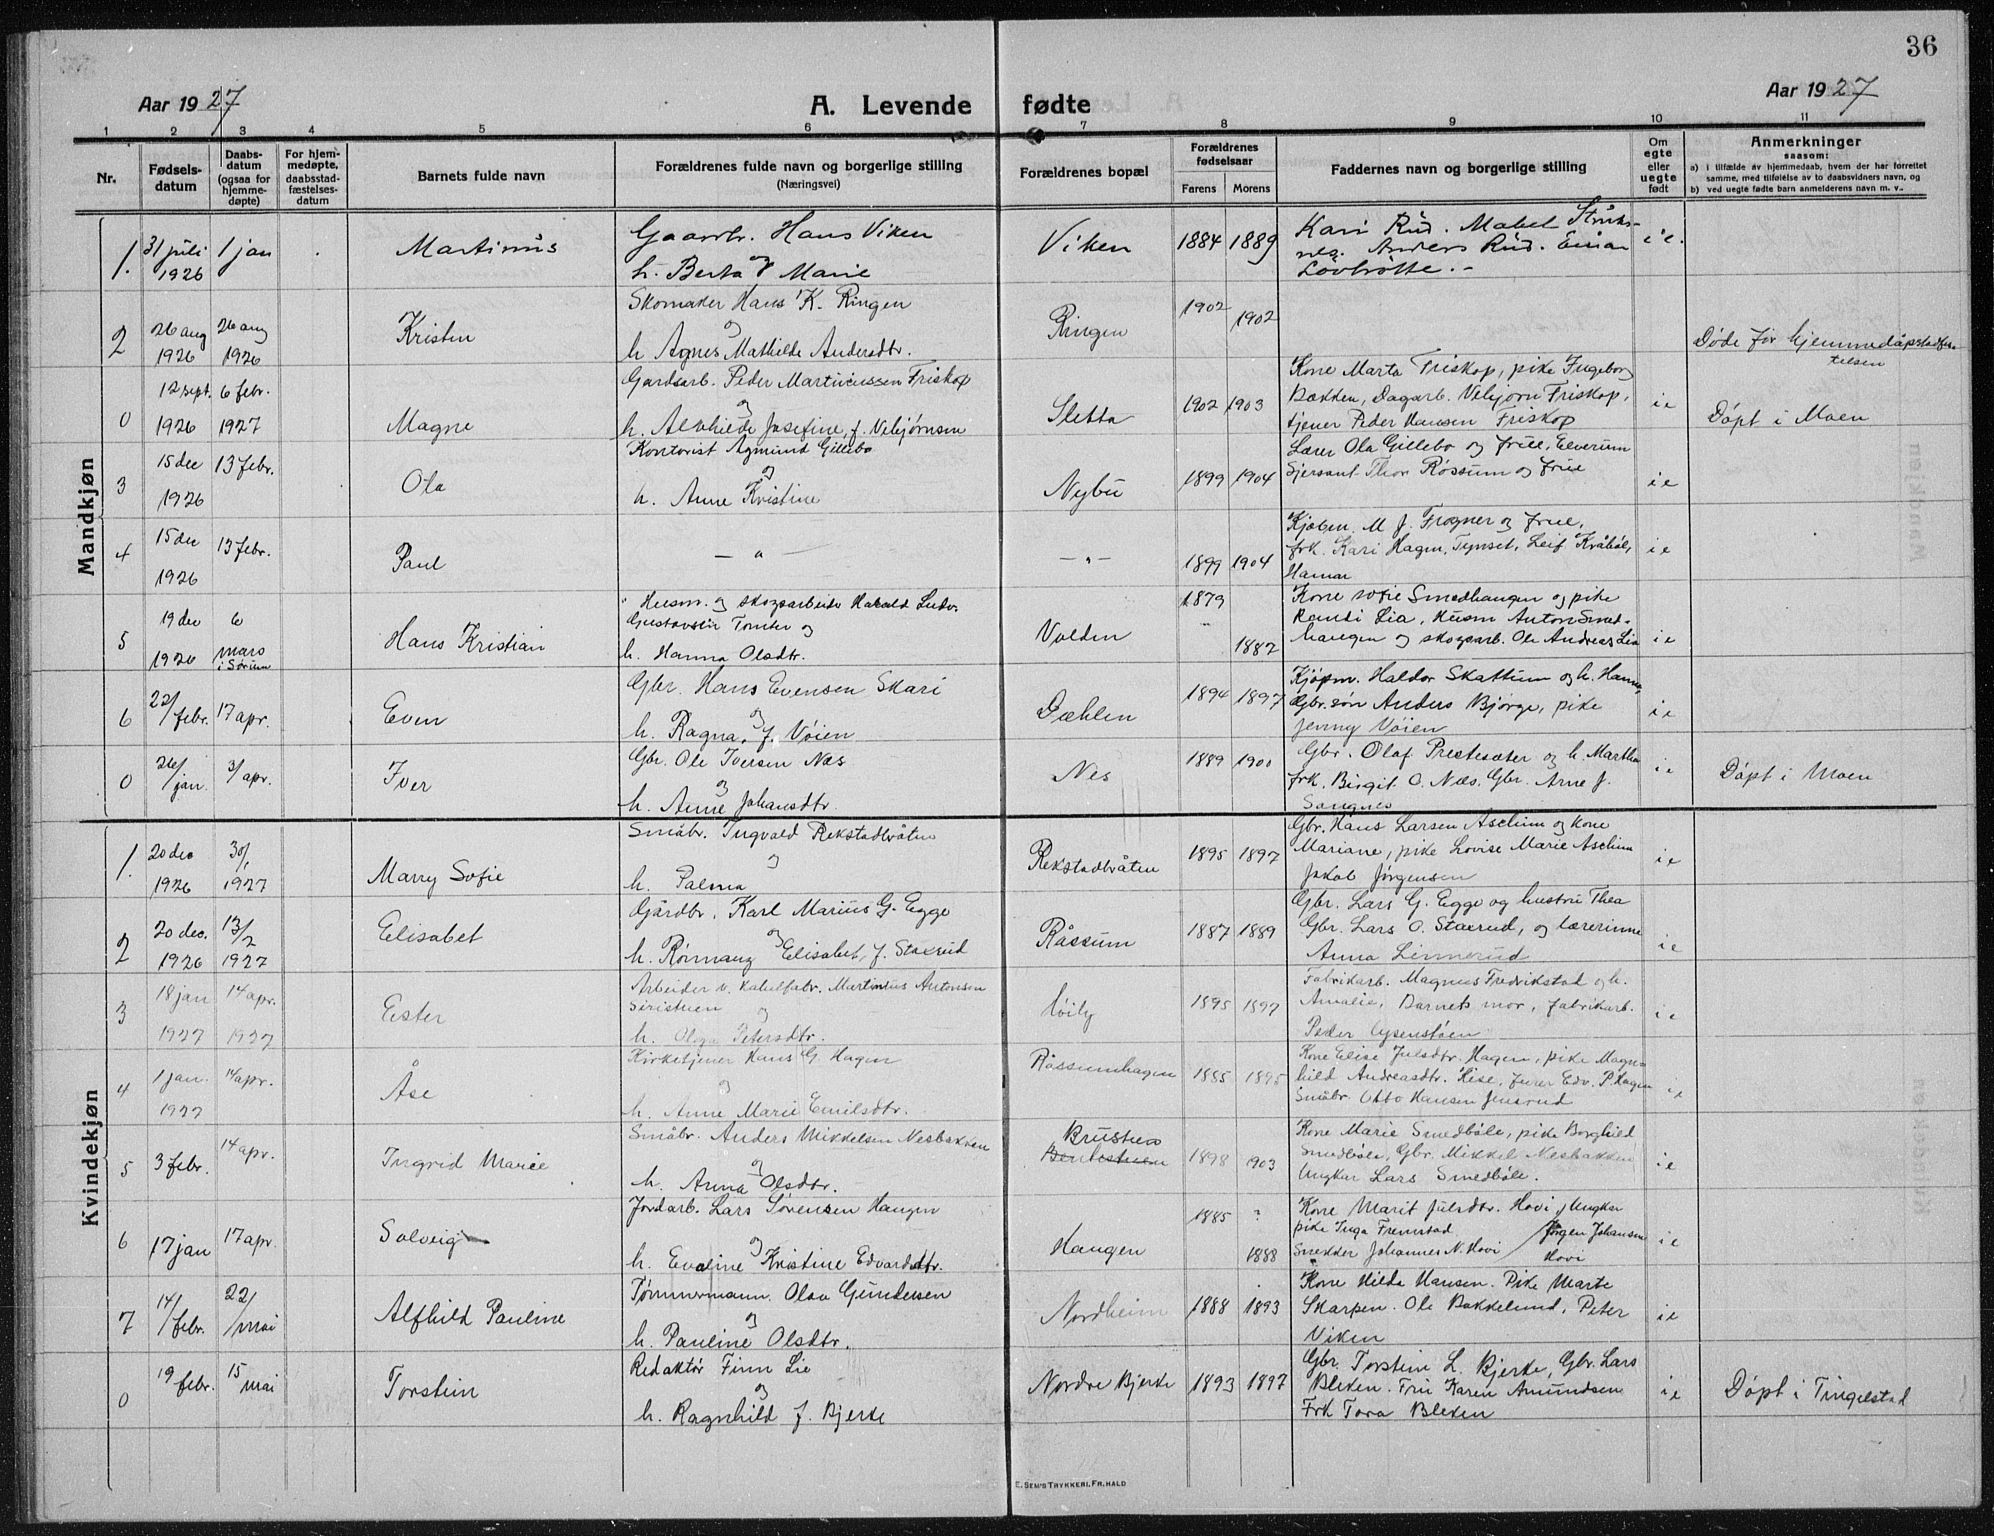 36
Aar 1927 A. Levende fødte Aar 1927
1 2 3 4 5 6 7 8 9 10 11
Nr. Fødselsdatum Daabsdatum (ogsaa for hjemmedøpte) For hjemmedøpte, daabsstadfæstelsesdatum Barnets fulde navn Forældrenes fulde navn og borgerlige stilling (Næringsvei) Forældrenes bopæl Forældrenes fødselsaar Farens Morens Faddernes navn og borgerlige stilling Om egte eller uegte født Anmerkninger saasom:
a) i tilfælde av hjemmedaab, hvem der har forrettet samme, med tilføielse av to daabsvidners navn, og
b) ved uegte fødte barn anmelderens navn m. v..
Mandkjøn
1. 31 juli 1926 1 jan Martinus Gaardbr. Hans Viken og h. Berta Marie Viken 1884 1889 Kari Rud. Mabel Anders Rud. Einar i e.
2 26 aug 1926 26 aug 1926 Kristen Skomaker Hans K. Ringen og h. Agnes Mathilde Andersdtr. Ringen 1902 1902 Døde før hjemmedåpstadfestelsen
0 12 sept. 1926 6 febr. 1927 Magne Gardsarb. Peder Martinussen Friskop og h. Alvhilde Josefine f. Vebjørnsen Sletta 1902 1903 Kone Marta Friskop, pike Ingeborg Bakken, Dagarb. Vebjørn Friskop, tjener Peder Hansen Friskop i e Døpt i Moen
3 15 dec 1926 13 febr. Ola Kontorist Agmund Gillebo og h. Anne Kristine Nybu 1899 1904 Lærer Ola Gillebo og frue, Elverum Sjersant Thor Røssum og frue i e
4 15 dec 1926 13 febr. Paul — " — — " — 1899 1904 Kjøbm. M. J. Frogner og frue, frk. Kari Hagen, Tynset, Leif Kråbøl, Hamar i e
5 19 dec 1926 6 mars i Sørum Hans Kristian Husm. og skogsarbeider Harald Ludv. Gustavsen Tomter og h. Hanna Olsdtr. Volden 1879 1882 Kone Sofie Smedhaugen og pike Randi Lia, Husm Anton Smedhaugen og skogsarb. Ole Andreas Lia i e
6 22/febr. 17 apr. Even Gbr. Hans Evensen Skari og h. Ragna, f. Vøien Dæhlen 1894 1897 Kjøpm. Haldor Skattum og h. Hanna, Gbr. søn Anders Bjørge, pike Jenny Vøien i e
0 26/jan. 3/apr. Iver Gbr. Ole Iversen Næs og h. Anne Johansdtr. Nes 1889 1900 Gbr. Olaf Prestesæter og h. Martha frk. Birgit O. Næs. Gbr. Arne J. Sangnes i e Døpt i Moen
Kvindekjøn
1. 20 dec 1926 30/1 1927 Marry Sofie Småbr. Ingvald Rekstadbråten og h. Palma Rekstadbråten 1895 1897 Gbr. Hans Larsen Aschim og kone Mariane, pike Lovise Marie Aschim Jakob Jørgensen i e
2 20 dec. 1926 13/2 1927 Elisabet Gårdbr. Karl Marius G. Egge og h. Rønnaug Elisabet, f. Staxrud Råssum 1887 1889 Gbr. Lars G. Egge og hustru Thea Gbr. Lars O. Staxrud, og lærerinne Anna Linnerud i e
3 18 jan 1927 14 apr. 1927 Ester Arbeider v. Kabelfabr. Martinius Antonsen Seristuen og h. Olga Petersdtr. 1895 1897 Fabrikarb. Magnus Fredrikstad og h. Amalie, Barnets mor, fabrikarb. Peder i e
4 1 jan. 1927 14 apr. Åse Kirketjener Hans G. Hagen og h. Anne Marie Emilsdtr. Råssumhagen 1885 1895 Kone Elise Julsdtr. Hagen, pike Magnhild Andreasdtr. Hise, furer Edv. P. Hagen Småbr. Otto Hansen Jensrud i e
5 3 febr. 14 apr. Ingrid Marie Småbr. Anders Mikkelsen Nesbakken og h. Anna Olsdtr. Brustuen 1898 1903 Kone Marie Smedbøle, pike Borghild Smedbøle, Gbr. Mikkel Nesbakken Ungkar Lars Smedbøle. i e
6 17 jan 17 apr. Solveig Jordarb. Lars Sørensen Haugen og h. Evaline Kristine Edvardsdtr. Haugen 1885 ? 1888 Kone Marit Julsdtr. Hovi pike Inga Fremstad Smedder Johannes N. Hovi / Ungkar Jørgen Johansen Hovi i e
7 14/febr. 22/mai Alfhild Pauline Tømmermann. Olav Gundersen og h. Pauline Olsdtr. Nordheim 1888 1893 Kone Hilda Hansen. Pike Marte Skarpen. Ole Bakkelund, Peter Viken i e
0 19 febr. 15 mai Torstein Redaktør Finn Lie og h. Ragnhild f. Bjerke Nordre Bjerke 1893 1897 Gbr. Torstein L. Bjerke, Gbr. Lars Bleken. Fru Karen Amundsen Frk Tora Bleken i e Døpt i Tingelstad
E. SEM'S TRYKKERI, FR.HALD